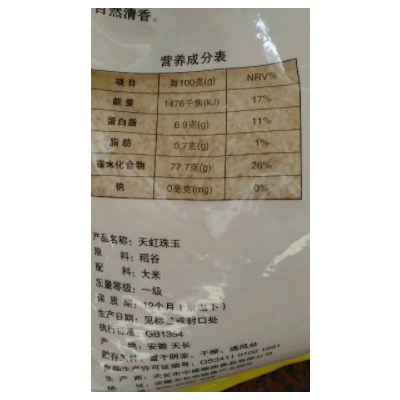 自然清香。
营养成分表
项目 每100克(g) NRV%
能量 1476千焦(kJ) 17%
蛋白质 6.9克(g) 11%
脂肪 0.7克(g) 1%
碳水化合物 77.7克(g) 26%
钠 0毫克(mg) 0%
产品名称: 天虹珠玉
原料: 稻谷
配料: 大米
质量等级: 一级
保质期: 12个月
生产日期: 见标签或封口处
执行标准: GB1354
产地: 安徽 天长
贮存条件: 置于阴凉、干燥、通风处
生产许可证编号: QS3411 0102 1691
生产商: